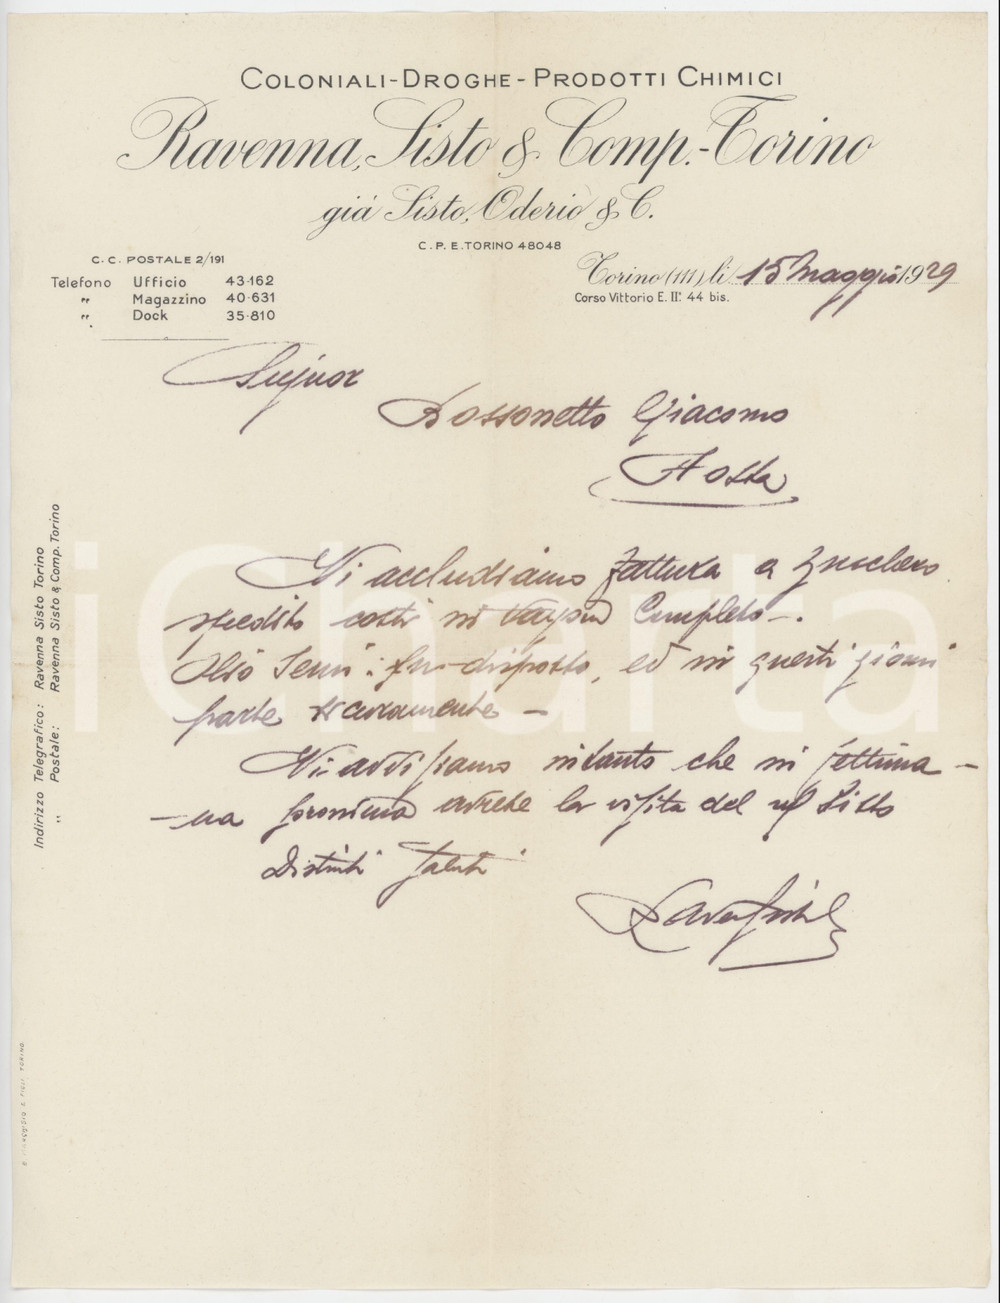 COLONIALI-DROGHE-PRODOTTI CHIMICI
Ravenna, Sisto & Comp.-Torino
già Sisto, Oderio & C.
C.P.E. TORINO 48048
C. C. POSTALE 2/191
Telefono Ufficio 43-162
" Magazzino 40-631
" Dock 35-810
Torino (111), li 15 Maggio 1929
Corso Vittorio E. II°. 44 bis.
Signor
Rossonetto Giacomo
Aosta
Vi accludiamo fattura a zucchero
spedito costì in vagone completo -.
Olio Semi: fu disposto, ed in questi giorni
parte sicuramente -
Vi avvisiamo intanto che in settima-
-na prossima avrete la visita del Sisto
Distinti Saluti
Indirizzo Telegrafico: Ravenna Sisto Torino
" Postale: Ravenna Sisto & Comp. Torino
iCharta